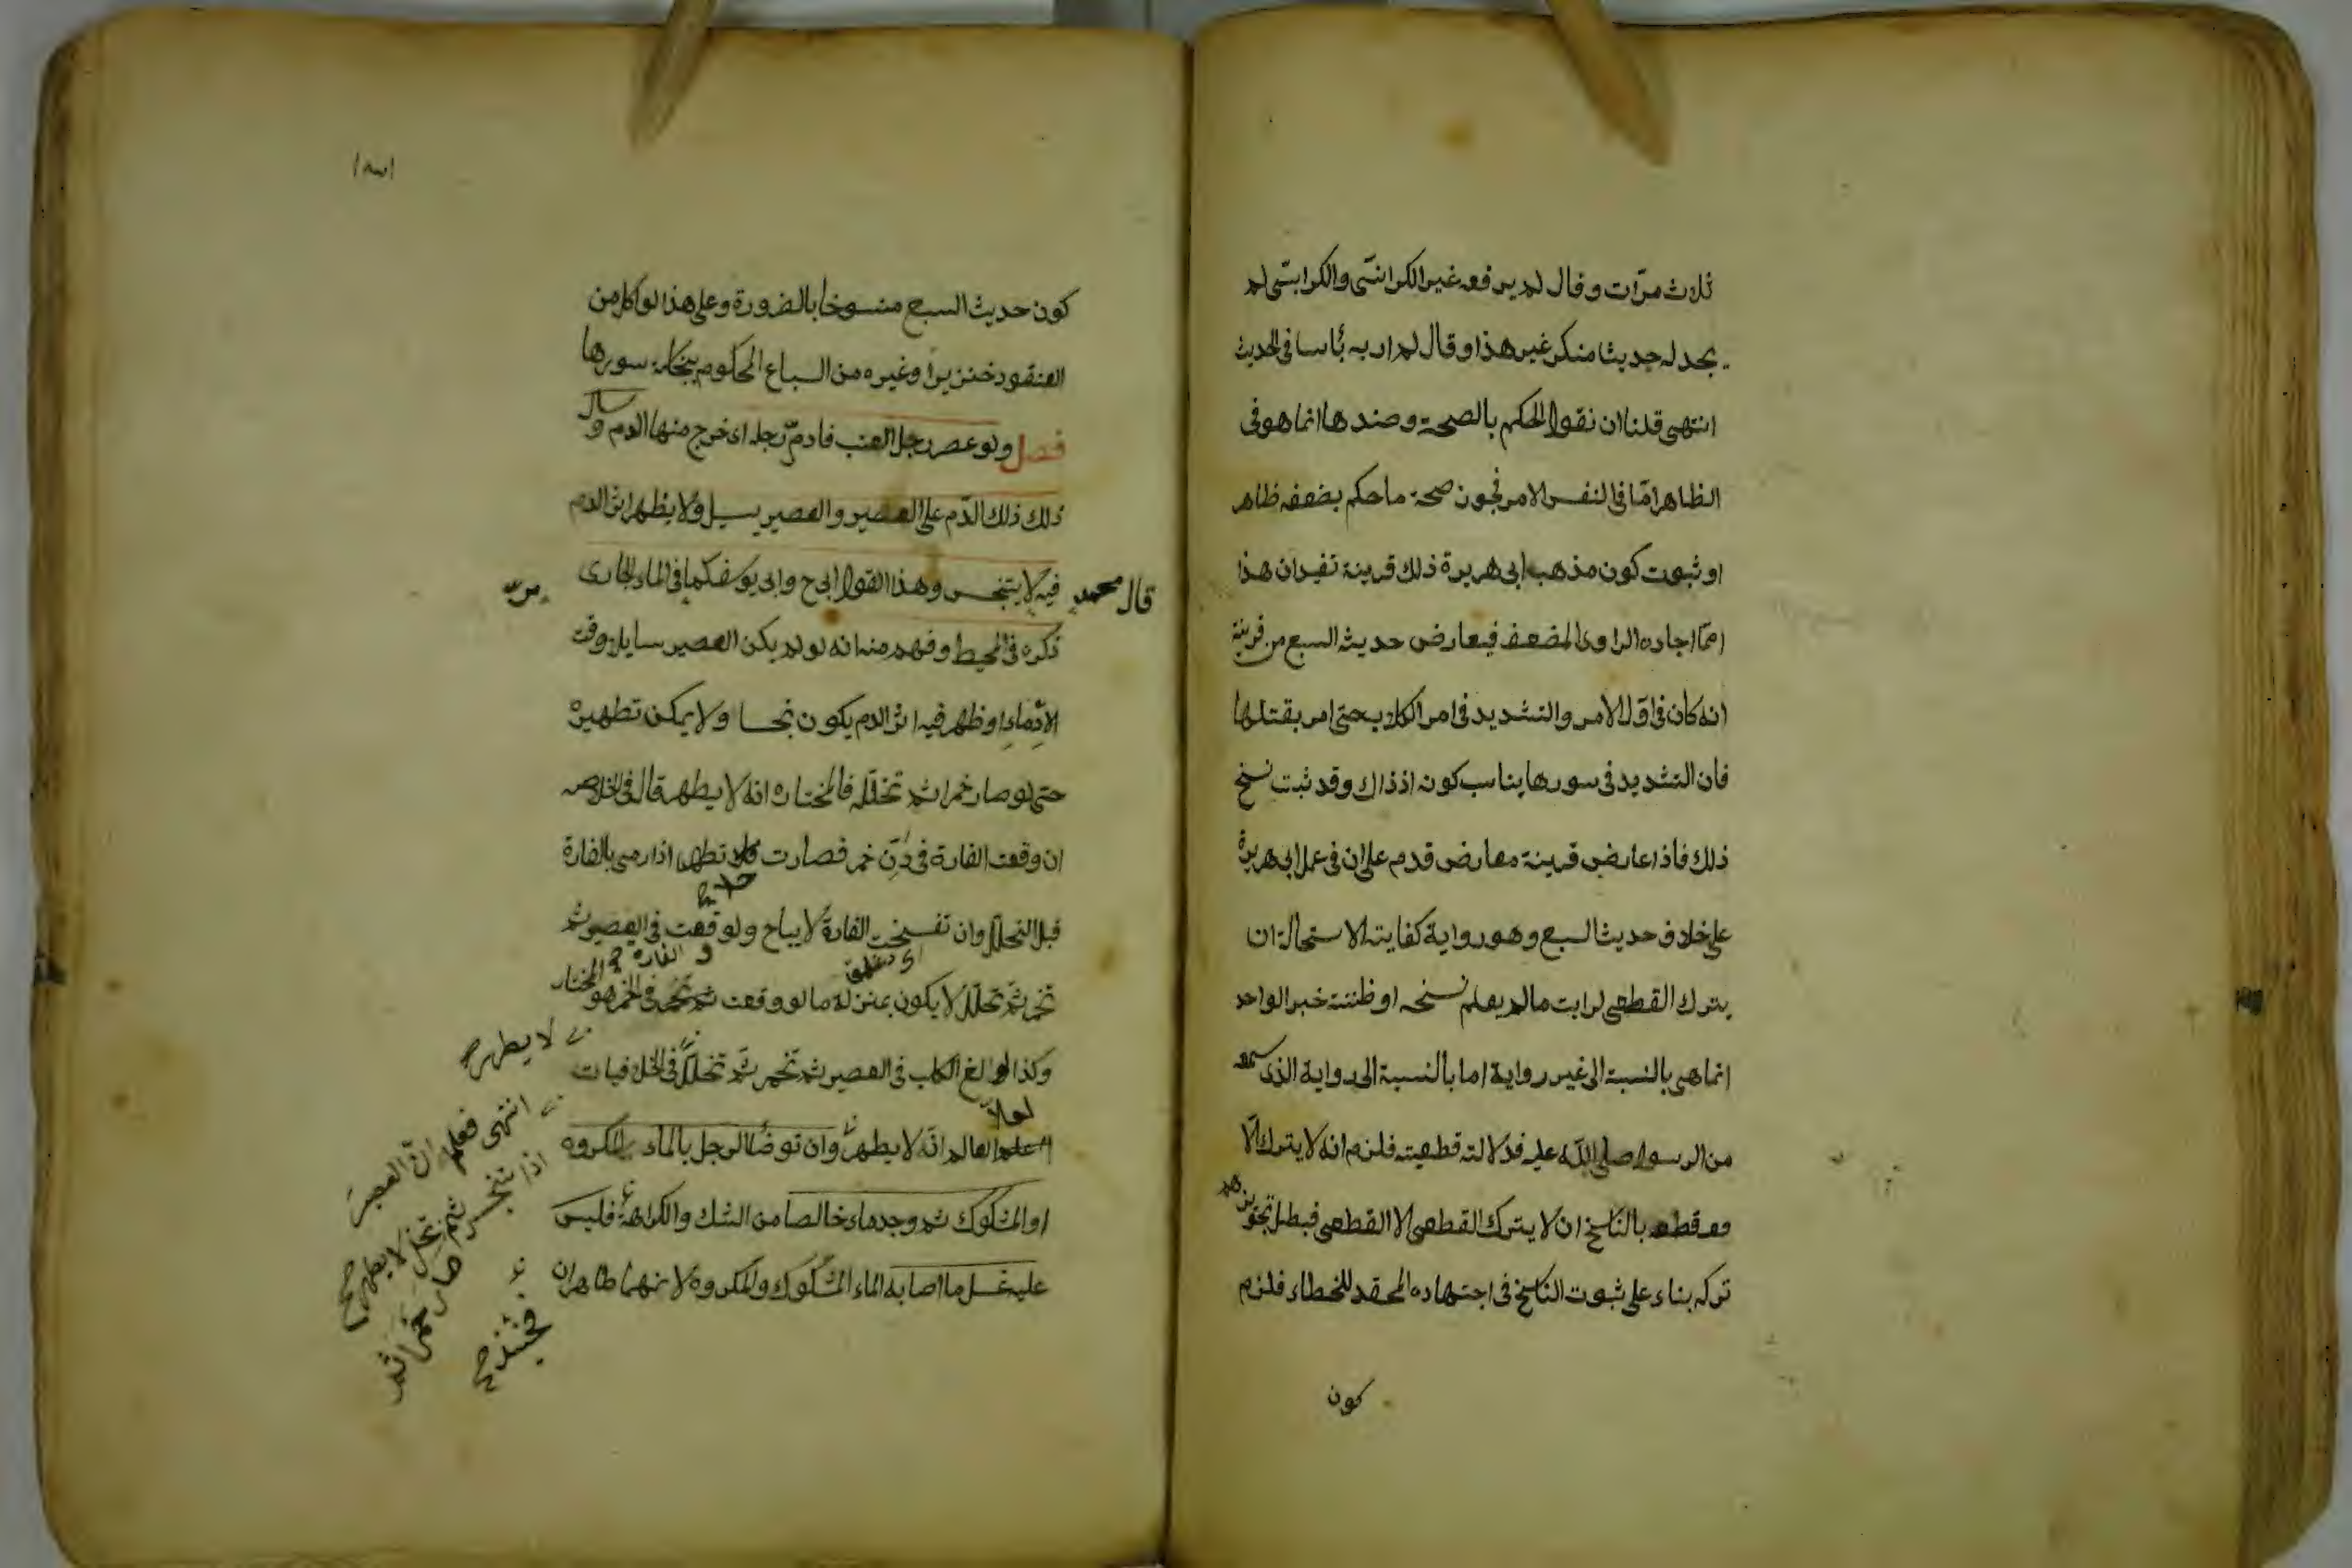 ثلاث مرّات وقال لم يرفعه غير الكرابيسي والكرابيسي لم
يجد له حديثا منكر غير هذا وقال لم ار به بأسا في الحديث
انتهى قلنا ان نقول الحكم بالصحة وضدها انما هو في
الظاهر امّا في النفس الامر فجون صحة ما حكم بضعفه ظاهر
او ثبوت كون مذهب ابى هريرة ذلك قرينة تفيد ان هذا
ممّا اجاده الراوى المضعف فيعارض حديث السبع من قرينة
انه كان في اوّل الامر والتشديد في امر الكلاب حتى امر بقتلها
فان التشديد في سورها يناسب كونه اذ ذاك وقد ثبت نسخ
ذلك فاذا عارض قرينة معارض قدم على ان في عمل ابى هريرة
على خلاف حديث السبع وهو رواية كفاية لاستحالة ان
يترك القطعى لرايت ما لم يعلم نسخه او ظننته خبر الواحد
انما هى بالنسبة الى غير رواية اما بالنسبة الى رواية الذى سمعه
من الرسول صلى الله عليه فدلالته قطعيته فلزم انه لا يترك الّا
مع قطعه بالناسخ ان لا يترك القطعى الا القطعى فبطل تجويزهم
تركه بناء على ثبوت الناسخ في اجتهاده المحقد للخطاء فلزم
كون
كون حديث السبع منسوخا بالضرورة وعلى هذا لو اكل من
العنقود خنزيرا وغيره من السباع المحكوم بنجاسة سورها
فصل ولو عصر رجل العنب فادمّ رجله اى خرج منها الدم وسال
ذلك ذلك الدّم على العصير والعصير يسيل ولا يظهر اثر الدم
فيه لا يتنجس وهذا القول ابى ح وابى يوسف كما في الماء الجارى
قال محمد
ذكره في المحيط وفهم منه انه لو لم يكن العصير سايلا وقت
الادماء او ظهر فيه اثر الدم يكون نجسا ولا يمكن تطهيره
حتى لو صار خمرا ثم تخلّله فالمختاره انه لا يطهر قال في الخلاصه
ان وقعت الفارة في دَنّ خمر فصارت خلا تطهر اذا رمى بالفارة
قبل التخلّل وان تفسخت الفارة لا يباح ولو وقعت في العصير ثم
تخمر ثمّ تخلّل لا يكون بمنزلة ما لو وقعت في الخمر هو المختار
وكذا لو ولغ الكلب في العصير ثم تخمر ثمّ تخلّل في الخل فيات
العالم انّه لا يطهر وان توضأ الرجل بالماء المكروه
او المشكوك ثم وجد ماء خالصا من الشك والكراهة فليس
عليه غسل ما اصابه الماء المشكوك والمكروه لانهما طاهران
لا يطهر صح
انتهى فعلم انّ العصير
اذا تنجس ثم صار خمرا ثم
تخلل لا يطهر صح